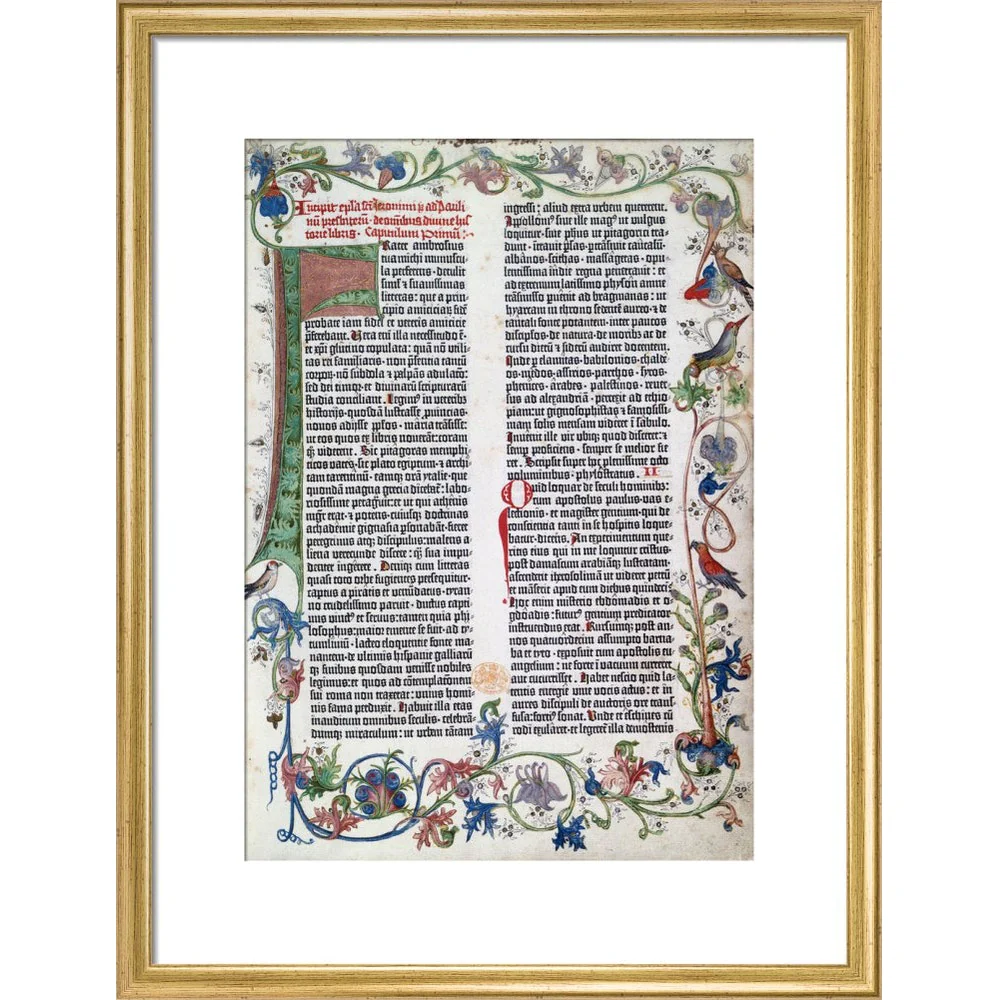 Incipit epistola sancti Jeronimi ꝑ ad Pauli
nū presbiterū · de omnibus divine his
torie libris · Capitulum Primū :
Frater ambrosius
tua michi munuscu-
la perferens · detulit
simĺ et suavissimas
litteras : que a prin-
cipio amiciciaꝝ fidē
probate iam fidei et veteris amicicie
preferebant. Vera enī illa necessitudo ē ·
et xp̄i glutino copulata : quā nō utili-
tas rei familiaris · nō presentia tantū
corpoꝝ · nō subdola et palpās adulatō :
sed dei timor · et divinarū scripturarū
studia conciliant. Legimꝰ in veteribꝫ
historijs · quosdā lustrasse ꝓvincias ·
novos adijsse ppłos · maria trāsisse :
ut eos quos ex libris noverāt : coram
qꝫ viderent. Sic pitagoras memphi-
ticos vates · sic plato egiptum · et archi-
tam tarentinū · eamqꝫ orā ytalie · que
quondā magna grecia dicebat̄ : labo-
riosissime peragravit : et ut qui athenis
mḡr erat · et potens · cuiusqꝫ doctrinas
achademie gignasia ꝑsonabāt · fieret
peregrinus atqꝫ discipulus : malens a-
liena verecunde discere : qꝫ sua impu-
denter ingerere. Deniqꝫ cum litteras
quasi toto orbe fugientes persequitur ·
captus a piratis et venūdatus · tyran-
no crudelissimo paruit · ductus capti-
vus vinctꝰ et servus : tamen quia phi-
losophus : maior emente se fuit · ad ty-
tumliviū · lacteo eloquentie fonte ma-
nantem · de ultimis hispanie galliarū
qꝫ finibus quosdam venisse nobiles
legimus : et quos ad cōtemplacōnem
sui roma non traxerat : unius homi-
nis fama perduxit. Habuit illa etas
inauditum omnibus seculis · celebrā-
dumqꝫ miraculum : ut urbem tātam
ingressi : aliud extra urbem quererent.
Appollonꝰ sive ille magꝰ ut vulgus
loquitur · sive phūs ut pitagorici tra-
dunt · intravit ꝑsas · ꝑtransivit caucasū ·
albanos · scithas · massagetas · opu-
lentissima indie regna penetravit : et
ad extremum latissimo physon amne
trāsmisso ꝑvenit ad bragmanas : ut
hyarcam in throno sedentē aureo · et de
tantali fonte potantem · inter paucos
discipulos · de natura · de moribus ac de
cursu dierū et siderū audiret docentem.
Inde ꝑ elamitas · babilonios · chalde-
os · medos · assirios · parthos · syros ·
phenices · arabes · palestinos · rever-
sus ad alexandriā · perrexit ad ethio-
piam : ut gignosophistas et famosissi-
mam solis mensam videret ī sabulo.
Invenit ille vir ubiqꝫ quod disceret : et
semp proficiens · semper se melior fie-
ret. Scripsit super hoc plenissime octo
voluminibus · phylostratus. II
Quid loquar de seculi hominibꝫ :
cum apostolus paulus · vas e-
lectionis · et magister gentium · qui de
consciencia tanti in se hospitis loque-
batur · dicens. An experimentum que-
ritis eius qui in me loquitur cristus.
post damascum arabiāqꝫ lustratam ·
ascenderit iherosolimā ut videret petrū
et māserit apud eum diebus quindeci.
Hoc enim misterio ebdōmadis et o-
gdoadis : futurꝰ gencium predicator
instruendus erat. Rursumqꝫ post an-
nos quatuordecim assumpto barna-
ba et tyto · exposuit cum apostolis eu-
angelium : ne forte ī vacuum curreret
aut cucurrisset. Habet nescio quid la-
tentis energie · vive vocis actus : et in
aures discipuli de auctoris ore trans-
fusa : fortiꝰ sonat. Unde et eschines cū
rodi exularet · et legeret̄ illa demostenis